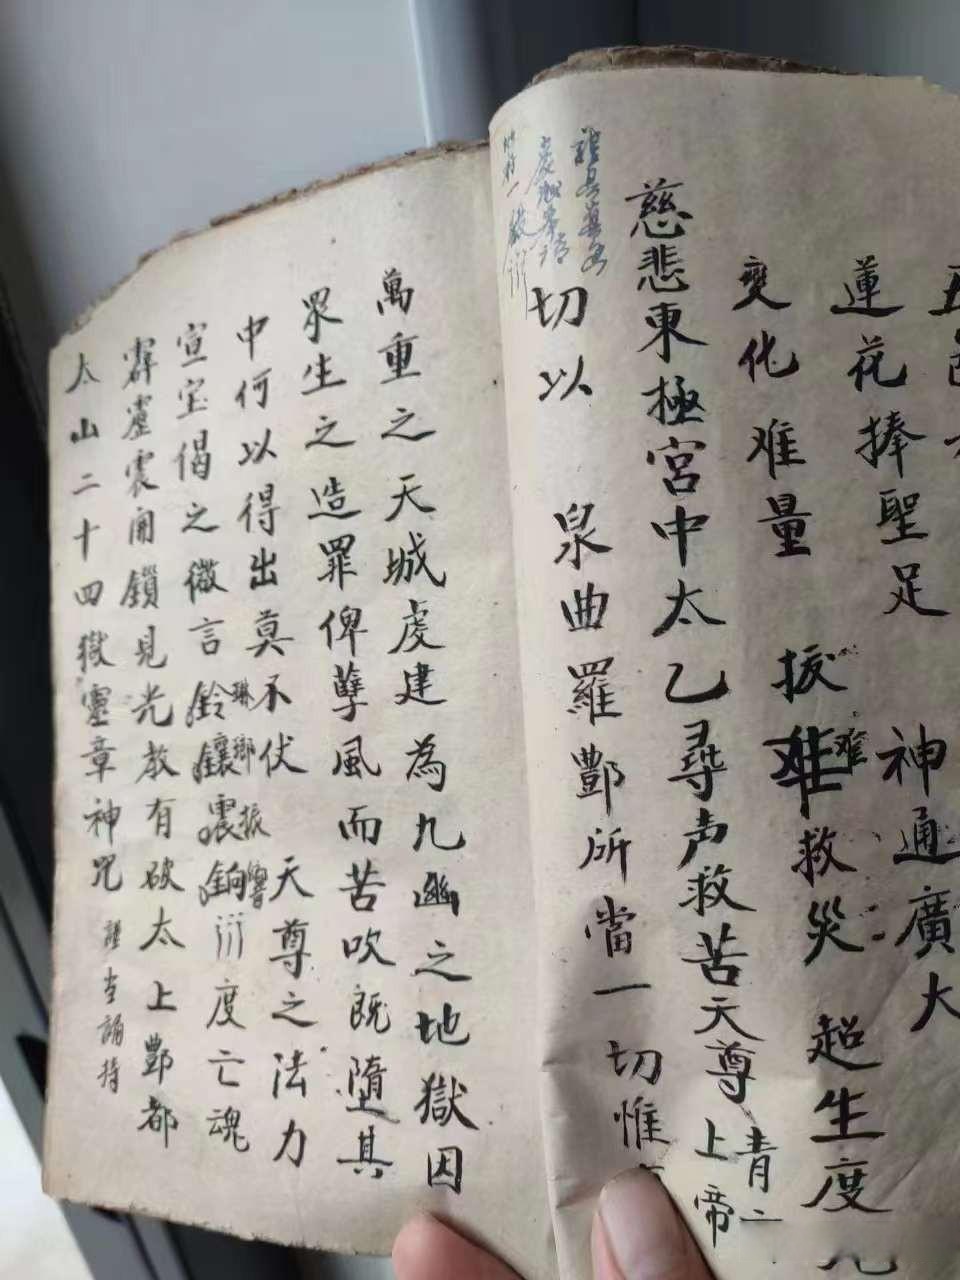 蓮花捧聖足　神通廣大
變化难量　拔难救災　超生度
难
慈悲東極宮中太乙尋声救苦天尊
青
上帝
切以　泉曲羅酆所當一切惟
萬重之天城虔建為九幽之地獄因
眾生之造罪俾孽風而苦吹既墮其
中何以得出莫不伏　天尊之法力
宣宝偈之微言鈴鑲震銄衍度亡魂
琳瑯振響
霹靂震開鎖見光教有破太上酆都
太山二十四獄靈章神咒　謹当誦持